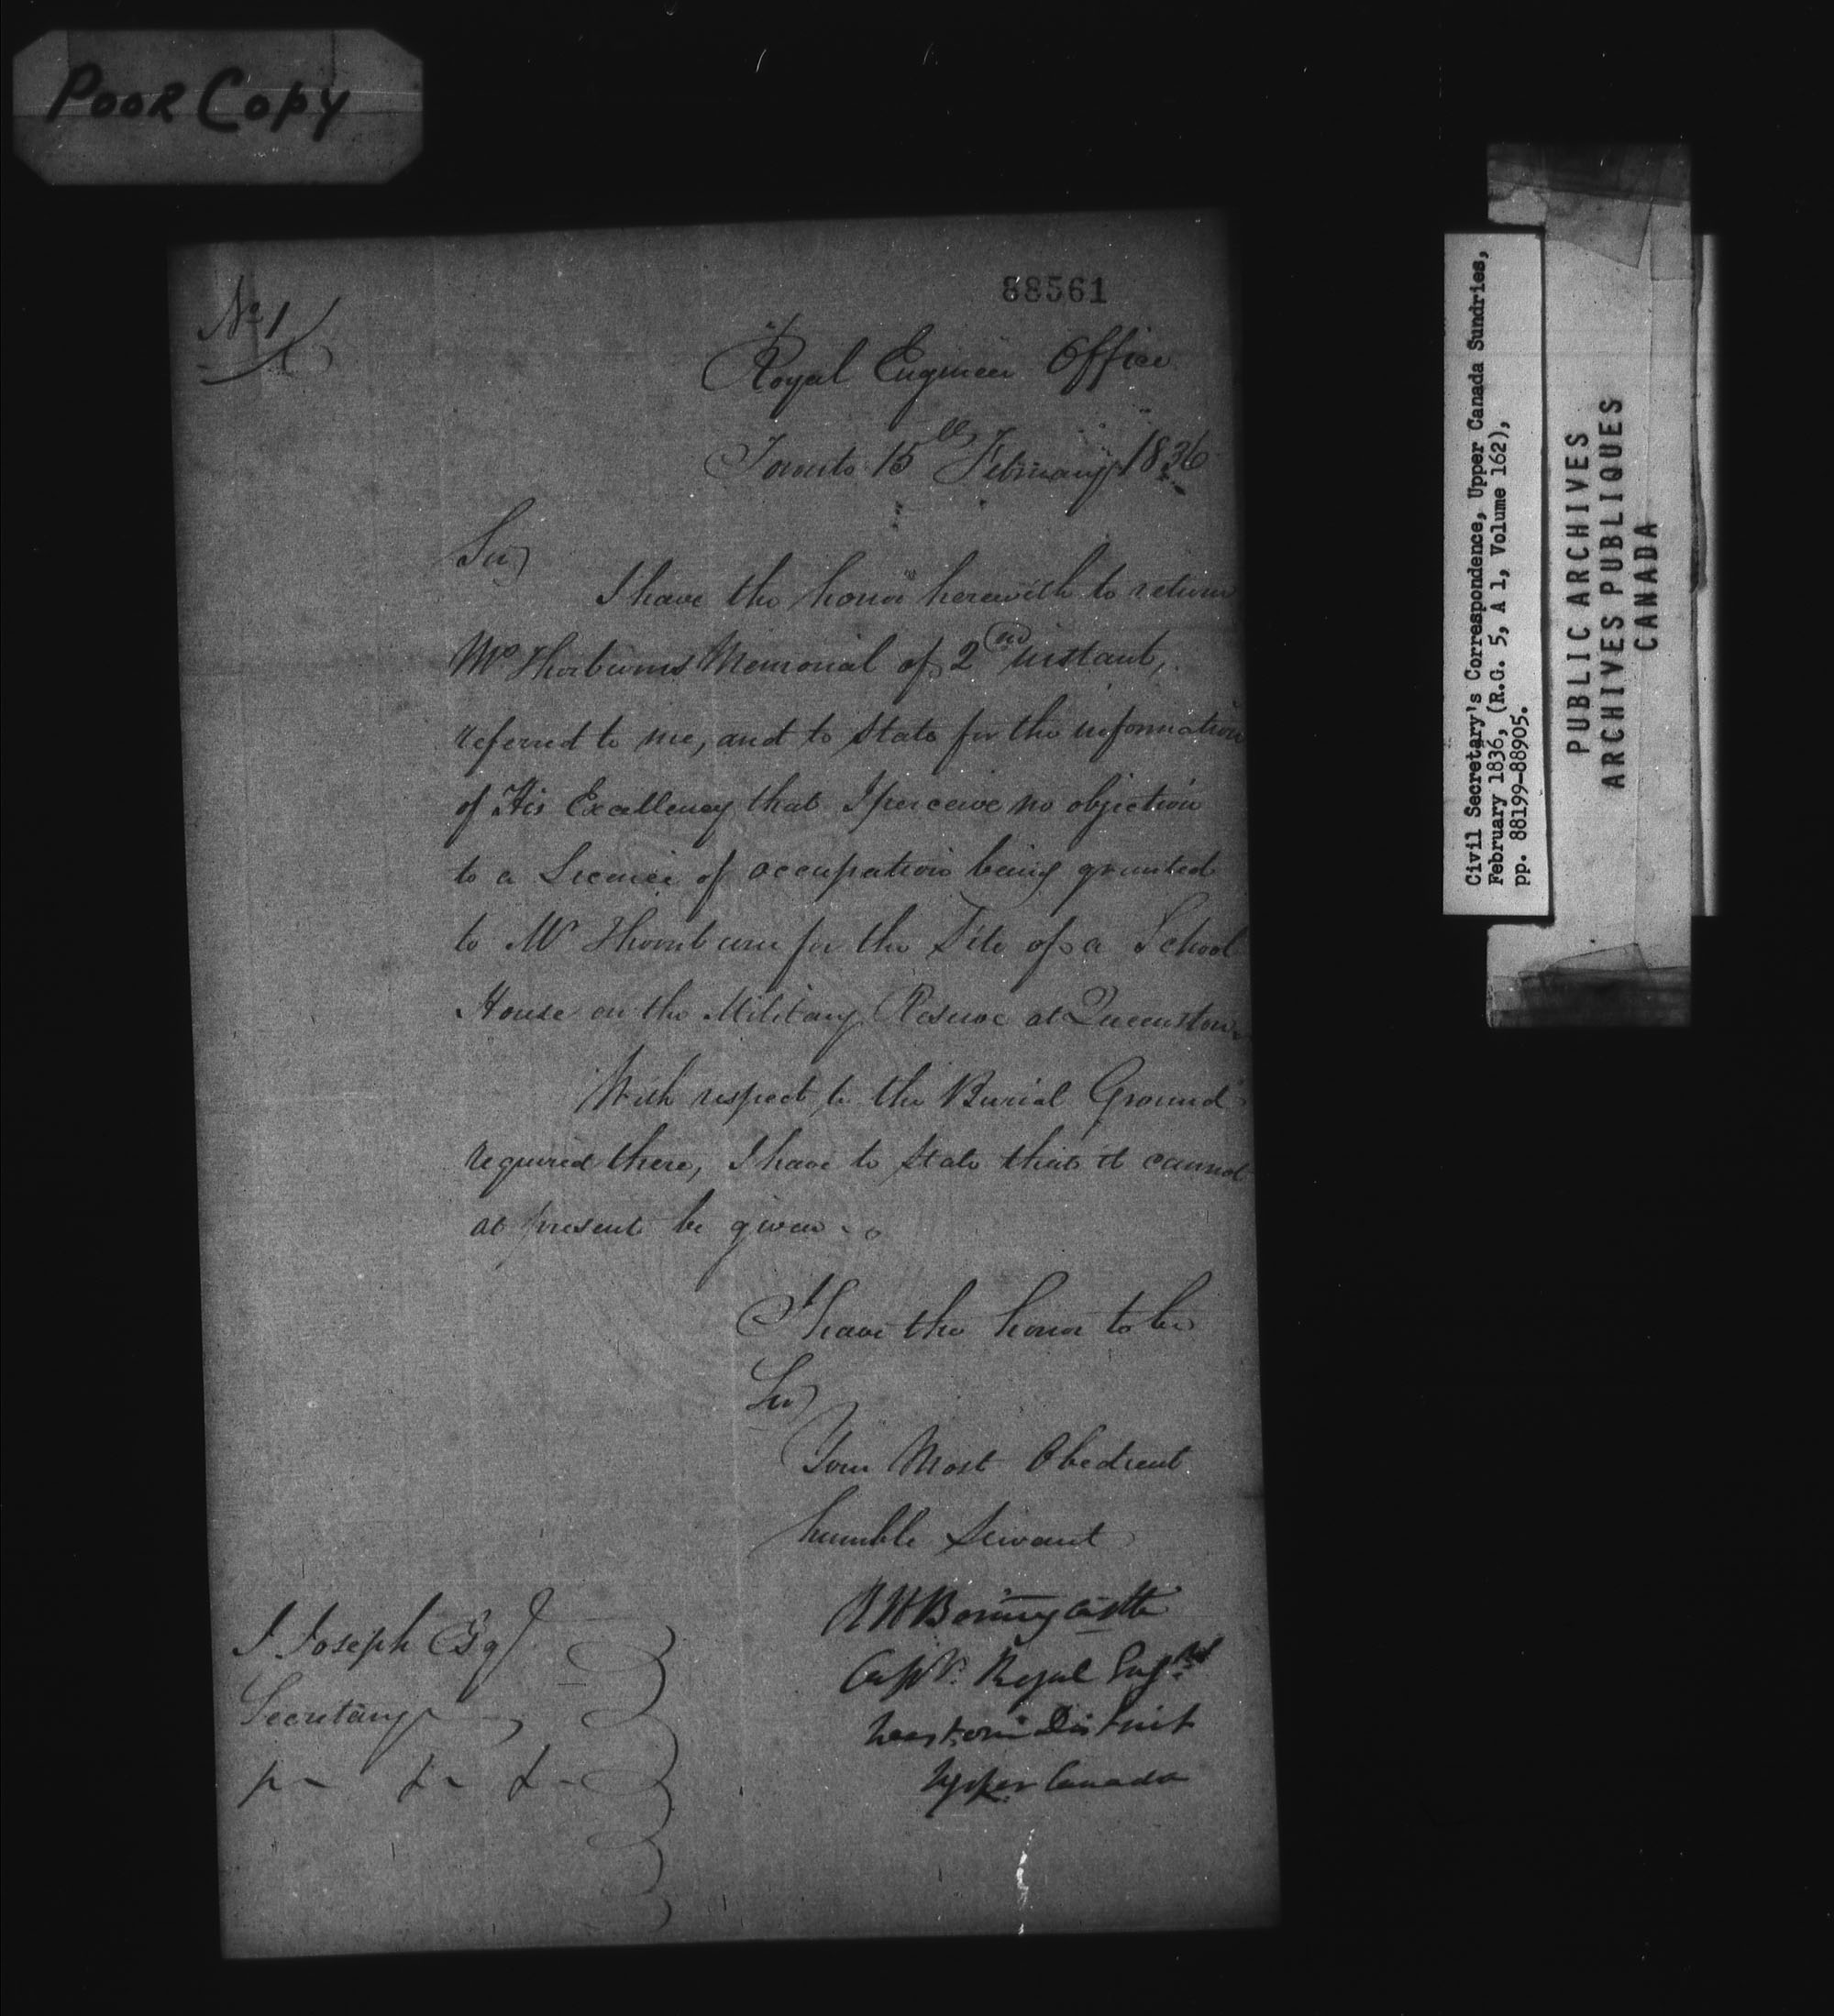 Poor Copy
No 1
88561
Royal Engineer Office
Toronto 15th February 1836
Sir,
I have the honor herewith to return
Mr Thorburns Memorial of 2nd instant,
referred to me, and to state for the information
of His Excellency that I perceive no objection
to a Licence of occupation being granted
to Mr Thornburn for the Site of a School
House on the Military Reserve at Queenston.
With respect to the Burial Ground
required there, I have to state that it cannot
at present be given.
I have the honor to be
Sir
Your Most Obedient
humble Servant
RH Bonnycastle
Captn. Royal Engrs
Western District
Upper Canada
J Joseph Esqr
Secretary
Civil Secretary's Correspondence, Upper Canada Sundries,
February 1836, (R.G. 5, A 1, Volume 162),
pp. 88199-88905.
PUBLIC ARCHIVES
ARCHIVES PUBLIQUES
CANADA